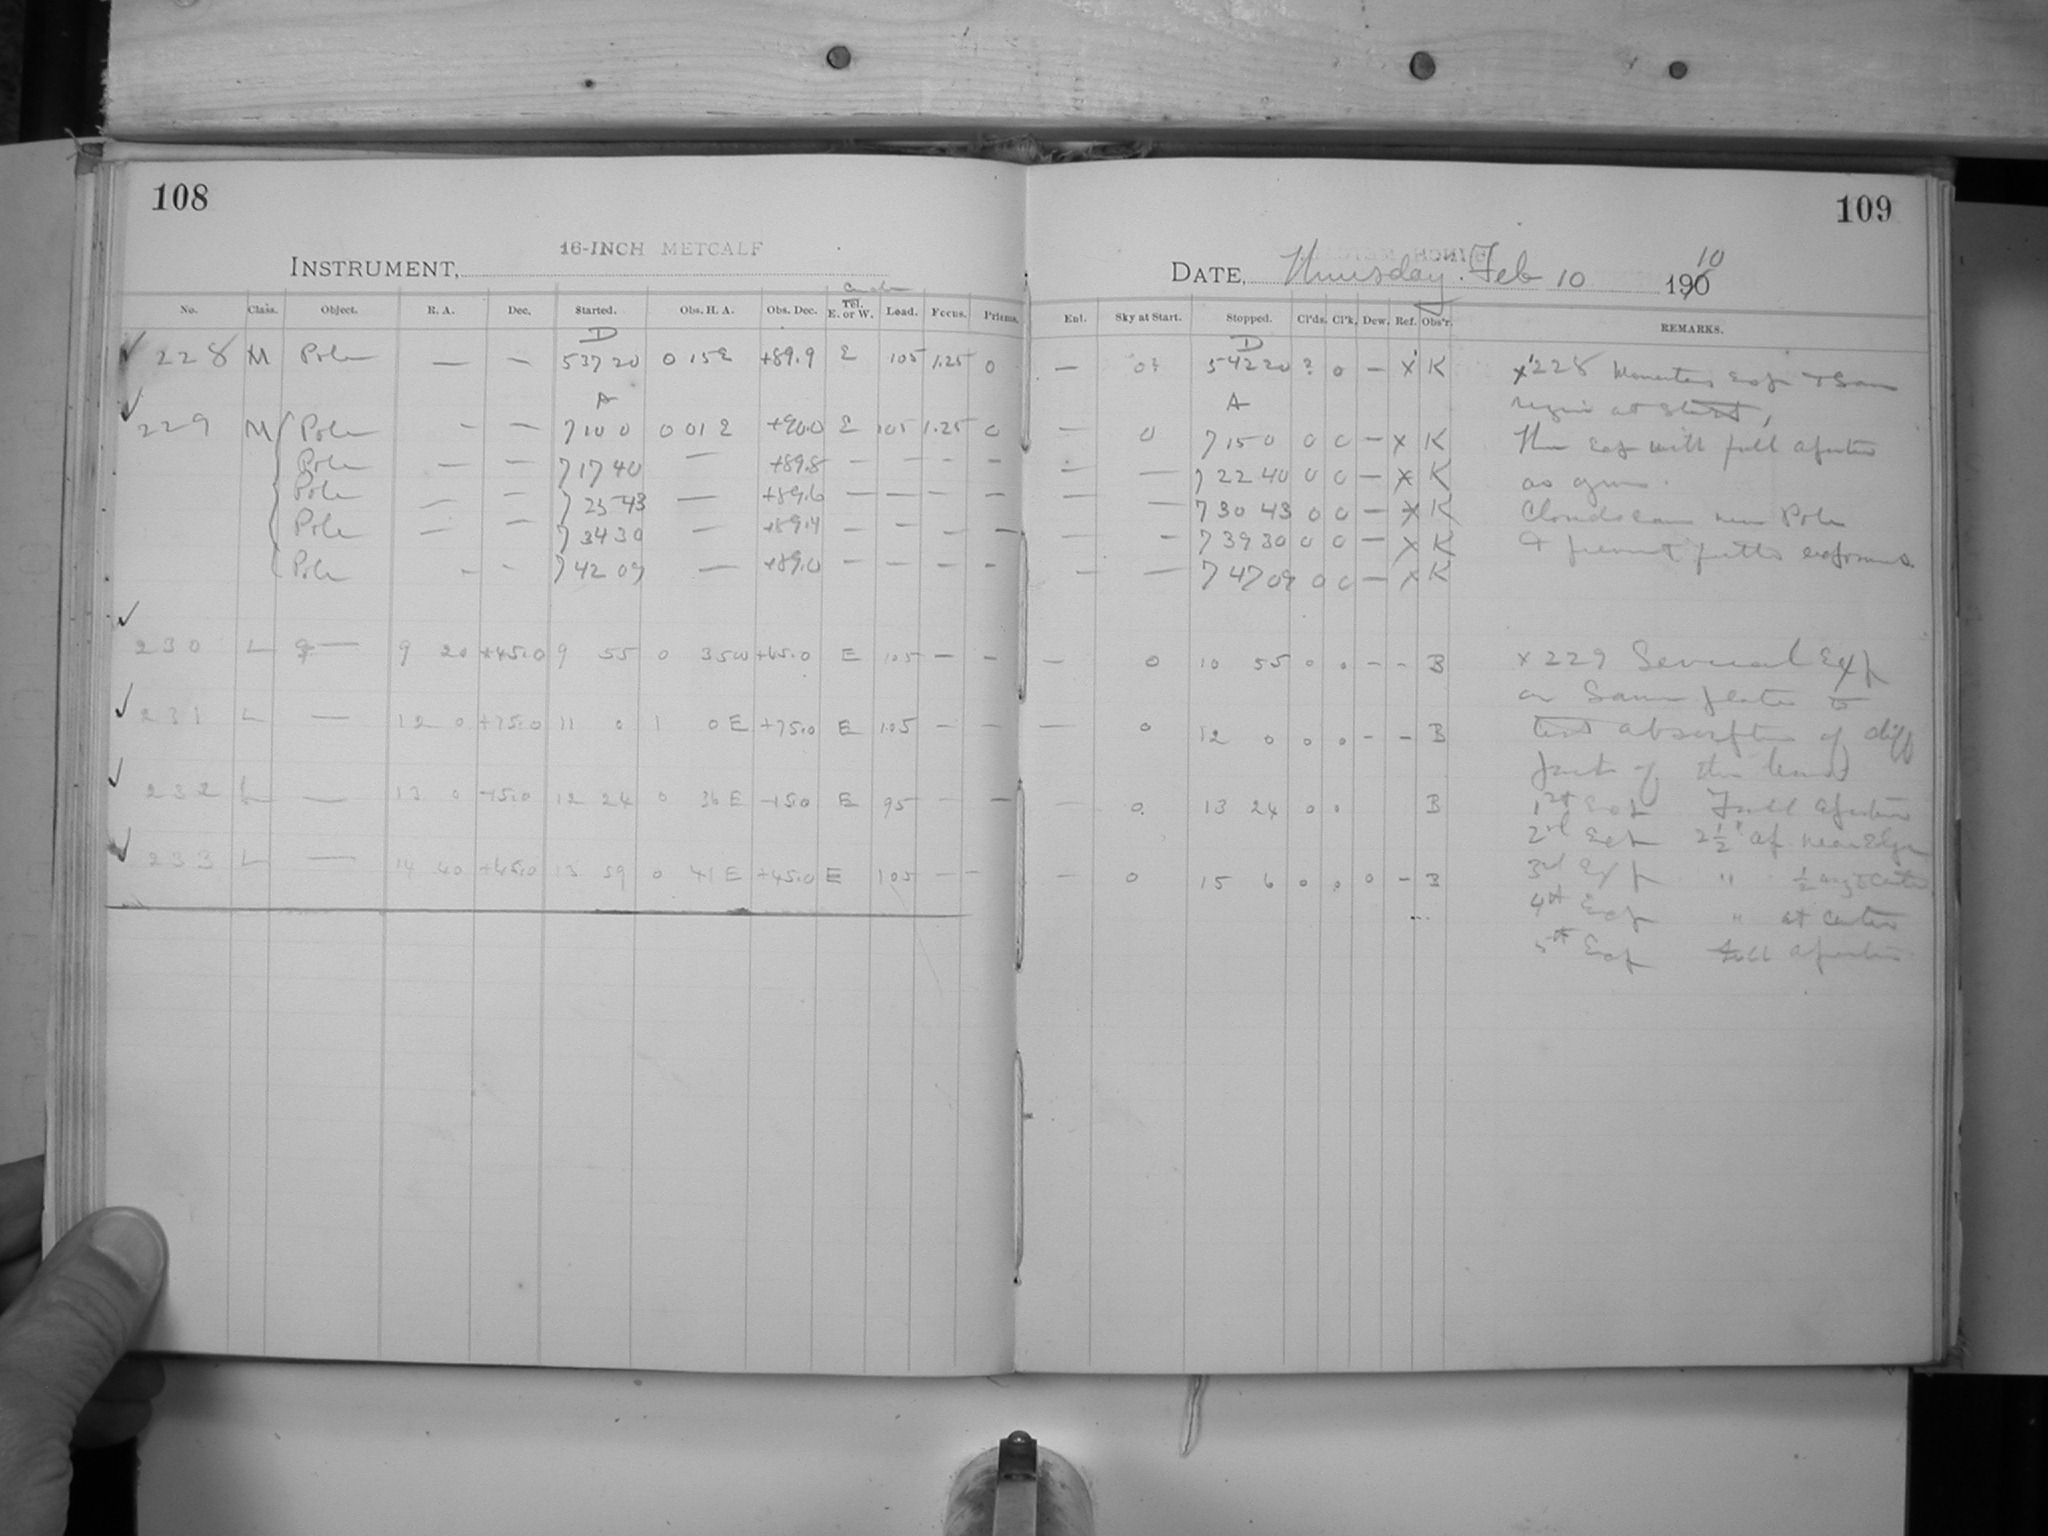 108
109
INSTRUMENT, 16-INCH METCALF
DATE, Thursday. Feb 10 1910
No. Class. Object. R. A. Dec. Started. Obs. H. A. Obs. Dec. Tel. E. or W. Load. Focus. Prisms. Enl. Sky at Start. Stopped. Cl'ds. Cl'k. Dew. Ref. Obs'r. REMARKS.
D D
228 M Pole — — 5 37 20 0 15 E +89.9 E 105 1.25 0 — 0? 5 42 20 ? 0 — x' K
A A
229 M Pole - - 7 10 0 0 01 E +90.0 E 105 1.25 0 — 0 7 15 0 0 0 — x K
Pole — — 7 17 40 — +89.8 — — — — — — 7 22 40 0 0 — x K
Pole — — 7 25 43 — +89.6 — — — — — — 7 30 43 0 0 — x K
Pole — — 7 34 30 — +89.4 — — — — — — 7 39 30 0 0 — x K
Pole - - 7 42 09 — +89.0 — — — - — — 7 47 09 0 0 — x K
230 L — 9 20 +45.0 9 55 0 35 W +45.0 E 105 — — — 0 10 55 0 0 - - B
231 L — 12 0 +75.0 11 0 1 0 E +75.0 E 105 — — — 0 12 0 0 0 - - B
232 L — 13 0 -15.0 12 24 0 36 E -15.0 E 95 - — — 0 13 24 0 0 B
233 L — 14 40 +45.0 13 59 0 41 E +45.0 E 105 — - — 0 15 6 0 0 0 - B
x' 228 Exp + Same
region at start,
Then Exp with full aperture
as given.
Clouds near Pole
+ prevent exposures.
x 229 Several Exp
on Same plate to
test absorption of diff
part of the lens
1st Exp Full aperture
2nd Exp 2 1/2" ap. near Edge
3rd Exp " 1/2 way to Center
4th Exp " at Center
5th Exp full aperture